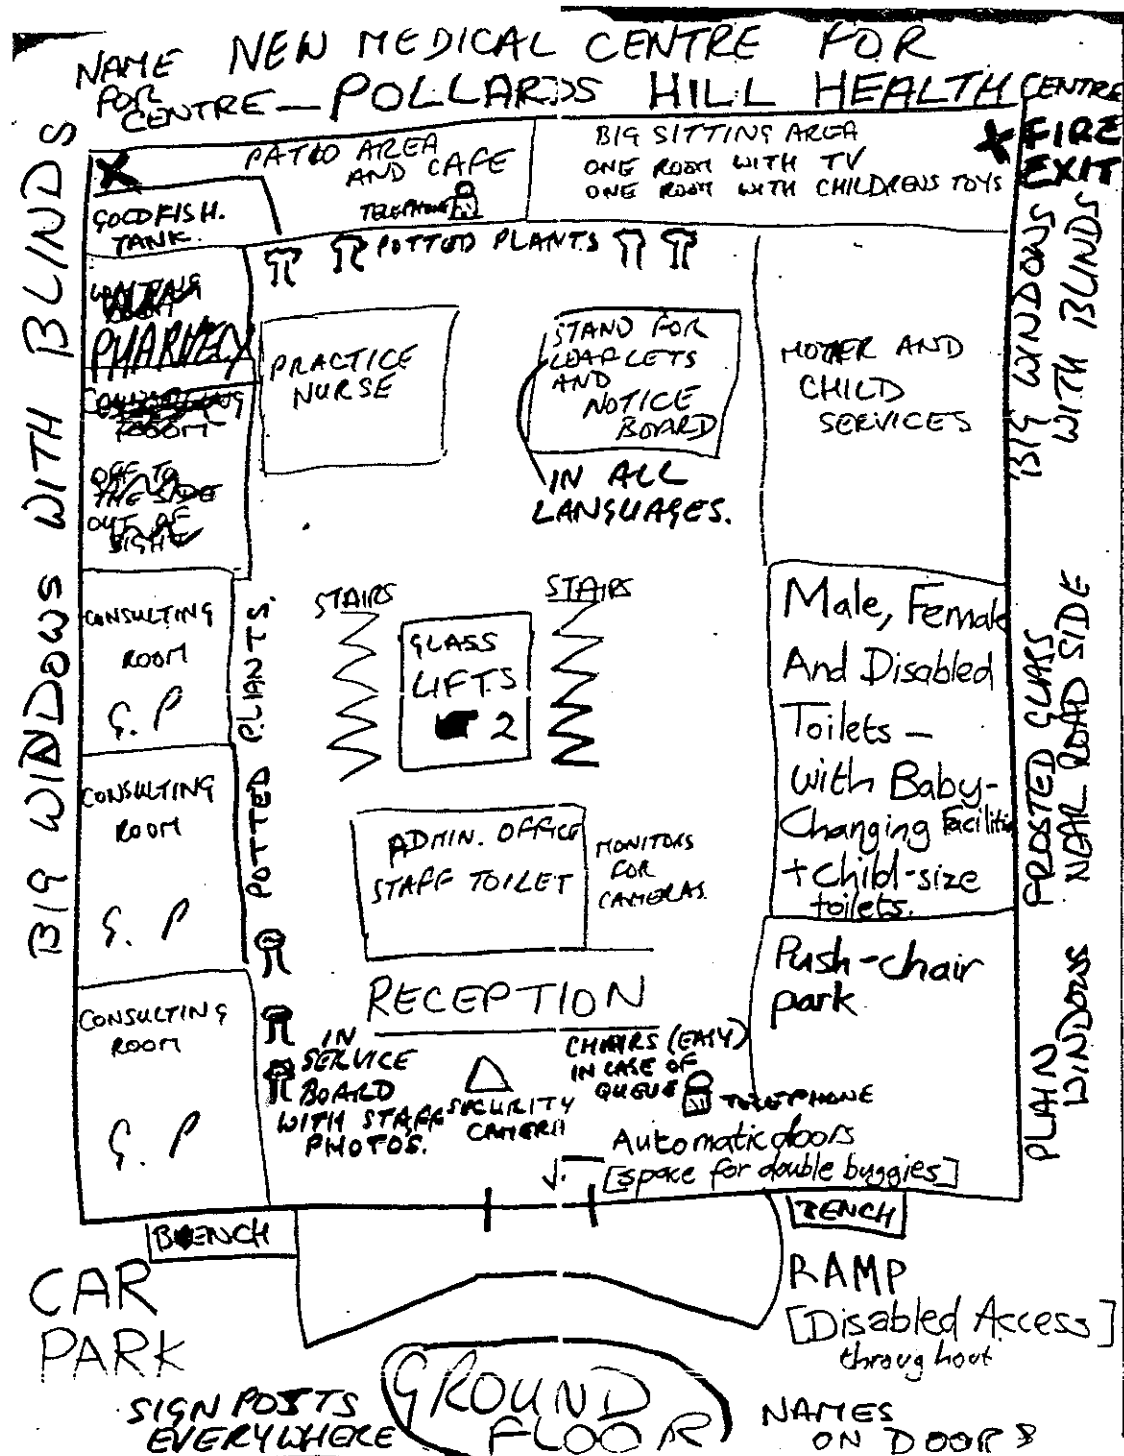 NEW MEDICAL CENTRE FOR
NAME
FOR
CENTRE — POLLARDS HILL HEALTH CENTRE
PATIO AREA
AND CAFE
TELEPHONE
BIG SITTING AREA
ONE ROOM WITH TV
ONE ROOM WITH CHILDRENS TOYS
X FIRE
EXIT
X
GOLDFISH.
TANK.
POTTED PLANTS
PHARMACY
OFF TO
THE SIDE
OUT OF
SIGHT
PRACTICE
NURSE
STAND FOR
LEAFLETS
AND
NOTICE
BOARD
IN ALL
LANGUAGES.
MOTHER AND
CHILD
SERVICES
BIG WINDOWS WITH BLINDS
BIG WINDOWS
WITH BLINDS
CONSULTING
ROOM
G.P
POTTED PLANTS.
STAIRS
GLASS
LIFTS
2
STAIRS
Male, Female
And Disabled
Toilets —
with Baby-
Changing Facilities
+ Child-size
toilets.
FROSTED GLASS
NEAR ROAD SIDE
CONSULTING
ROOM
G. P
ADMIN. OFFICE
STAFF TOILET
MONITORS
FOR
CAMERAS.
Push-chair
park
PLAIN
WINDOWS
CONSULTING
ROOM
G. P
RECEPTION
IN
SERVICE
BOARD
WITH STAFF
PHOTOS.
SECURITY
CAMERA
CHAIRS (EASY)
IN CASE OF
QUEUE
TELEPHONE
Automatic doors
[space for double buggies]
BENCH
BENCH
CAR
PARK
RAMP
[Disabled Access]
throughout
SIGN POSTS
EVERYWHERE
GROUND
FLOOR
NAMES
ON DOORS